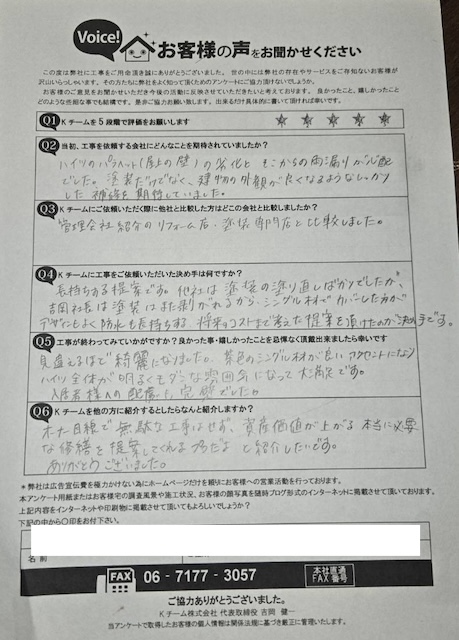 Voice!
お客様の声をお聞かせください
この度は弊社に工事をご用命頂き誠にありがとうございました。 世の中には弊社の存在やサービスをご存知ないお客様が
沢山いらっしゃいます。その方たちに弊社をよく知って頂くためのアンケートにご協力頂けないでしょうか。
お客様のご意見をお聞かせいただき今後の活動に反映させていただきたいと考えております。 良かったこと、嬉しかったこと
どのような些細な事でも結構です。是非ご協力お願い致します。出来るだけ具体的に書いて頂ければ幸いです。
Q1 Kチームを5段階で評価をお願いします ★ ★ ★ ★ ★
Q2 当初、工事を依頼する会社にどんなことを期待されていましたか?
ハイツのパラペット(屋上の壁)の劣化と そこからの雨漏りが心配
でした。塗装だけでなく、建物の外観が良くなるようなしっかり
した補修を期待していました。
Q3 Kチームにご依頼いただく際に他社と比較した方はどこの会社と比較しましたか?
管理会社紹介のリフォーム店・塗装専門店と比較しました。
Q4 Kチームに工事をご依頼いただいた決め手は何ですか?
長持ちする提案です。他社は塗装の塗り直しばかりでしたが、
吉岡社長は塗装はまた剥がれるから、シングル材でカバーした方が
デザインもよく防水も長持ちする、将来コストまで考えた提案を頂けたのが決め手です。
Q5 工事が終わってみていかがですか? 良かった事・嬉しかったことを忌憚なく頂戴出来ましたら幸いです
見違えるほど綺麗になりました。茶色のシングル材が良いアクセントになり
ハイツ全体が明るくモダンな雰囲気になって大満足です。
入居者様への配慮も完璧でした。
Q6 Kチームを他の方に紹介するとしたらなんと紹介しますか?
オーナー目線で無駄な工事はせず、資産価値が上がる本当に必要
な修繕を提案してくれる と紹介したいです。
ありがとうございました。
*弊社は広告宣伝費を極力かけない為にホームページだけを頼りにお客様への営業活動を行っております。
本アンケート用紙またはお客様宅の調査風景や施工状況、お客様の顔写真を随時ブログ形式のインターネットに掲載させて頂いております。
上記内容をインターネットや印刷物に掲載させて頂いてもよろしいでしょうか?
下記の中から〇印をお付下さい。
名前
FAX 06-7177-3057 本社直通 FAX番号
ご協力ありがとうございました。
Kチーム株式会社 代表取締役 吉岡 健一
当アンケートで取得したお客様の個人情報は関係法規に基づき厳正に管理いたします。